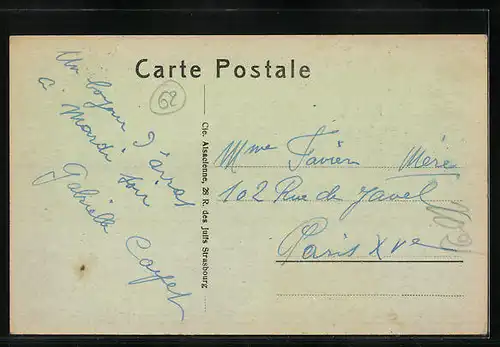 Carte Postale
62
Un boyau d'arras
à Mardi soir
Gabrielle Cayet
Cie. Alsacienne, 26 R. des Juifs Strasbourg
Mme Favier Mère
102 Rue de Javel
Paris XVe